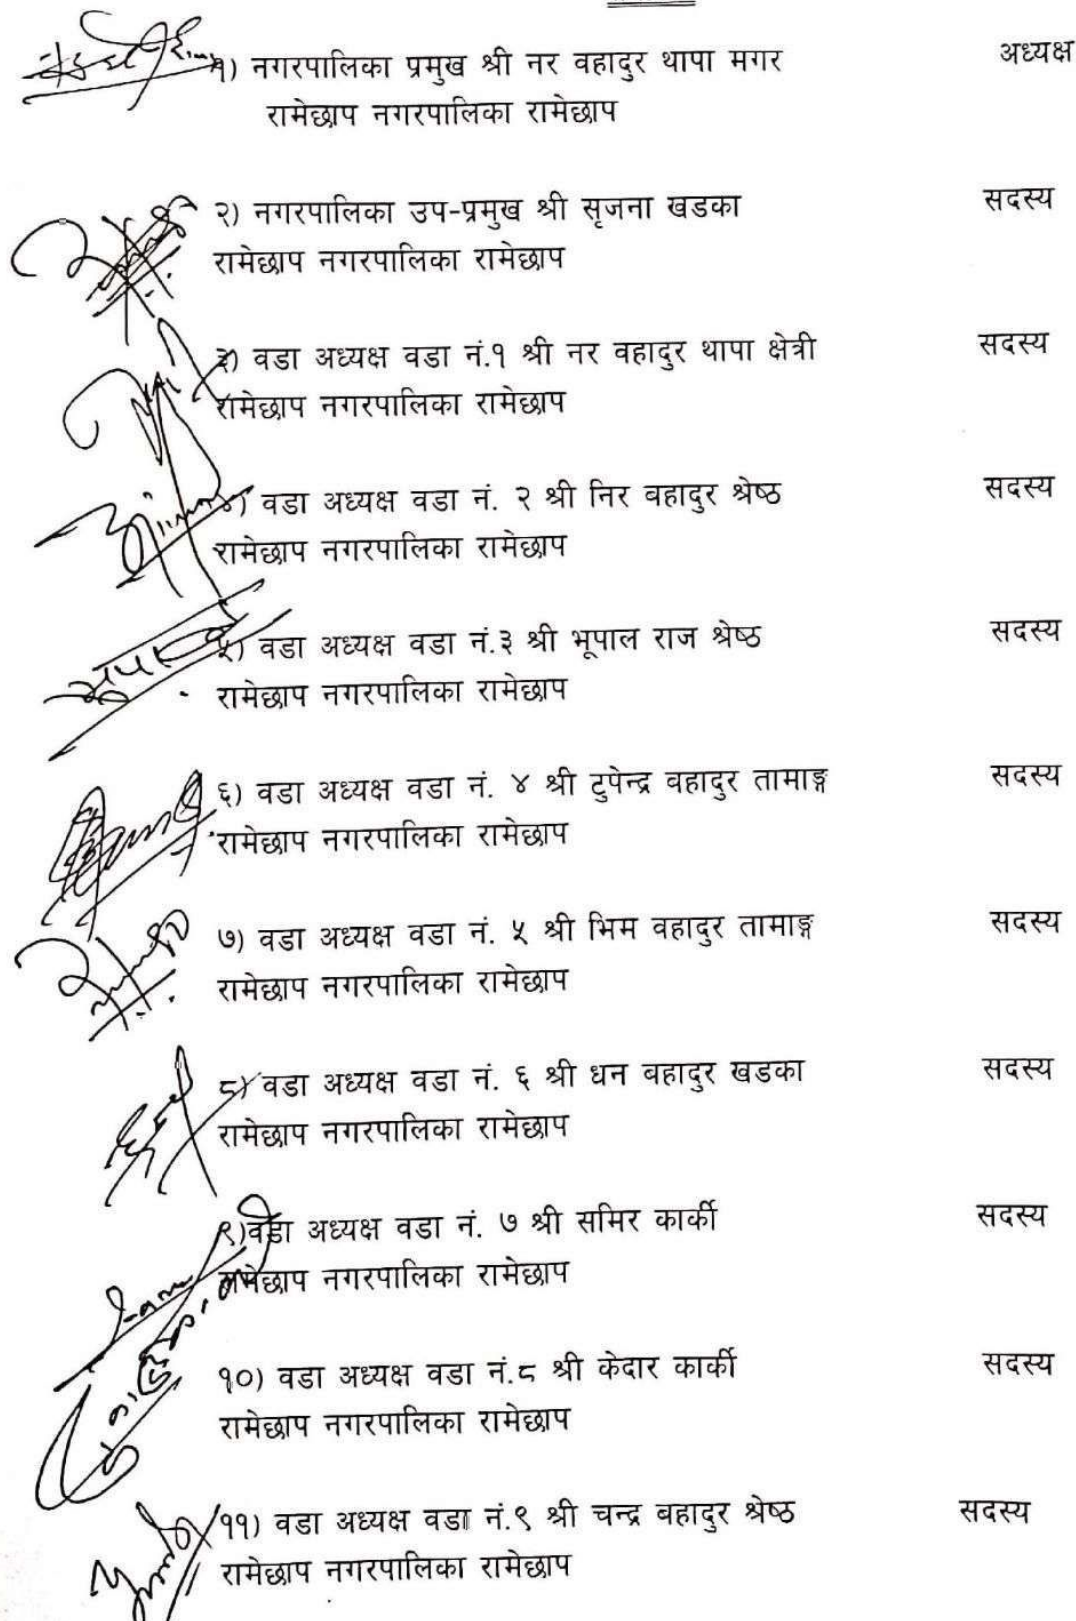 १) नगरपालिका प्रमुख श्री नर वहादुर थापा मगर अध्यक्ष
रामेछाप नगरपालिका रामेछाप
२) नगरपालिका उप-प्रमुख श्री सृजना खडका सदस्य
रामेछाप नगरपालिका रामेछाप
३) वडा अध्यक्ष वडा नं.१ श्री नर वहादुर थापा क्षेत्री सदस्य
रामेछाप नगरपालिका रामेछाप
४) वडा अध्यक्ष वडा नं. २ श्री निर बहादुर श्रेष्ठ सदस्य
रामेछाप नगरपालिका रामेछाप
५) वडा अध्यक्ष वडा नं.३ श्री भूपाल राज श्रेष्ठ सदस्य
रामेछाप नगरपालिका रामेछाप
६) वडा अध्यक्ष वडा नं. ४ श्री टुपेन्द्र बहादुर तामाङ्ग सदस्य
रामेछाप नगरपालिका रामेछाप
७) वडा अध्यक्ष वडा नं. ५ श्री भिम वहादुर तामाङ्ग सदस्य
रामेछाप नगरपालिका रामेछाप
८) वडा अध्यक्ष वडा नं. ६ श्री धन बहादुर खडका सदस्य
रामेछाप नगरपालिका रामेछाप
९)वडा अध्यक्ष वडा नं. ७ श्री समिर कार्की सदस्य
रामेछाप नगरपालिका रामेछाप
१०) वडा अध्यक्ष वडा नं.८ श्री केदार कार्की सदस्य
रामेछाप नगरपालिका रामेछाप
११) वडा अध्यक्ष वडा नं.९ श्री चन्द्र बहादुर श्रेष्ठ सदस्य
रामेछाप नगरपालिका रामेछाप